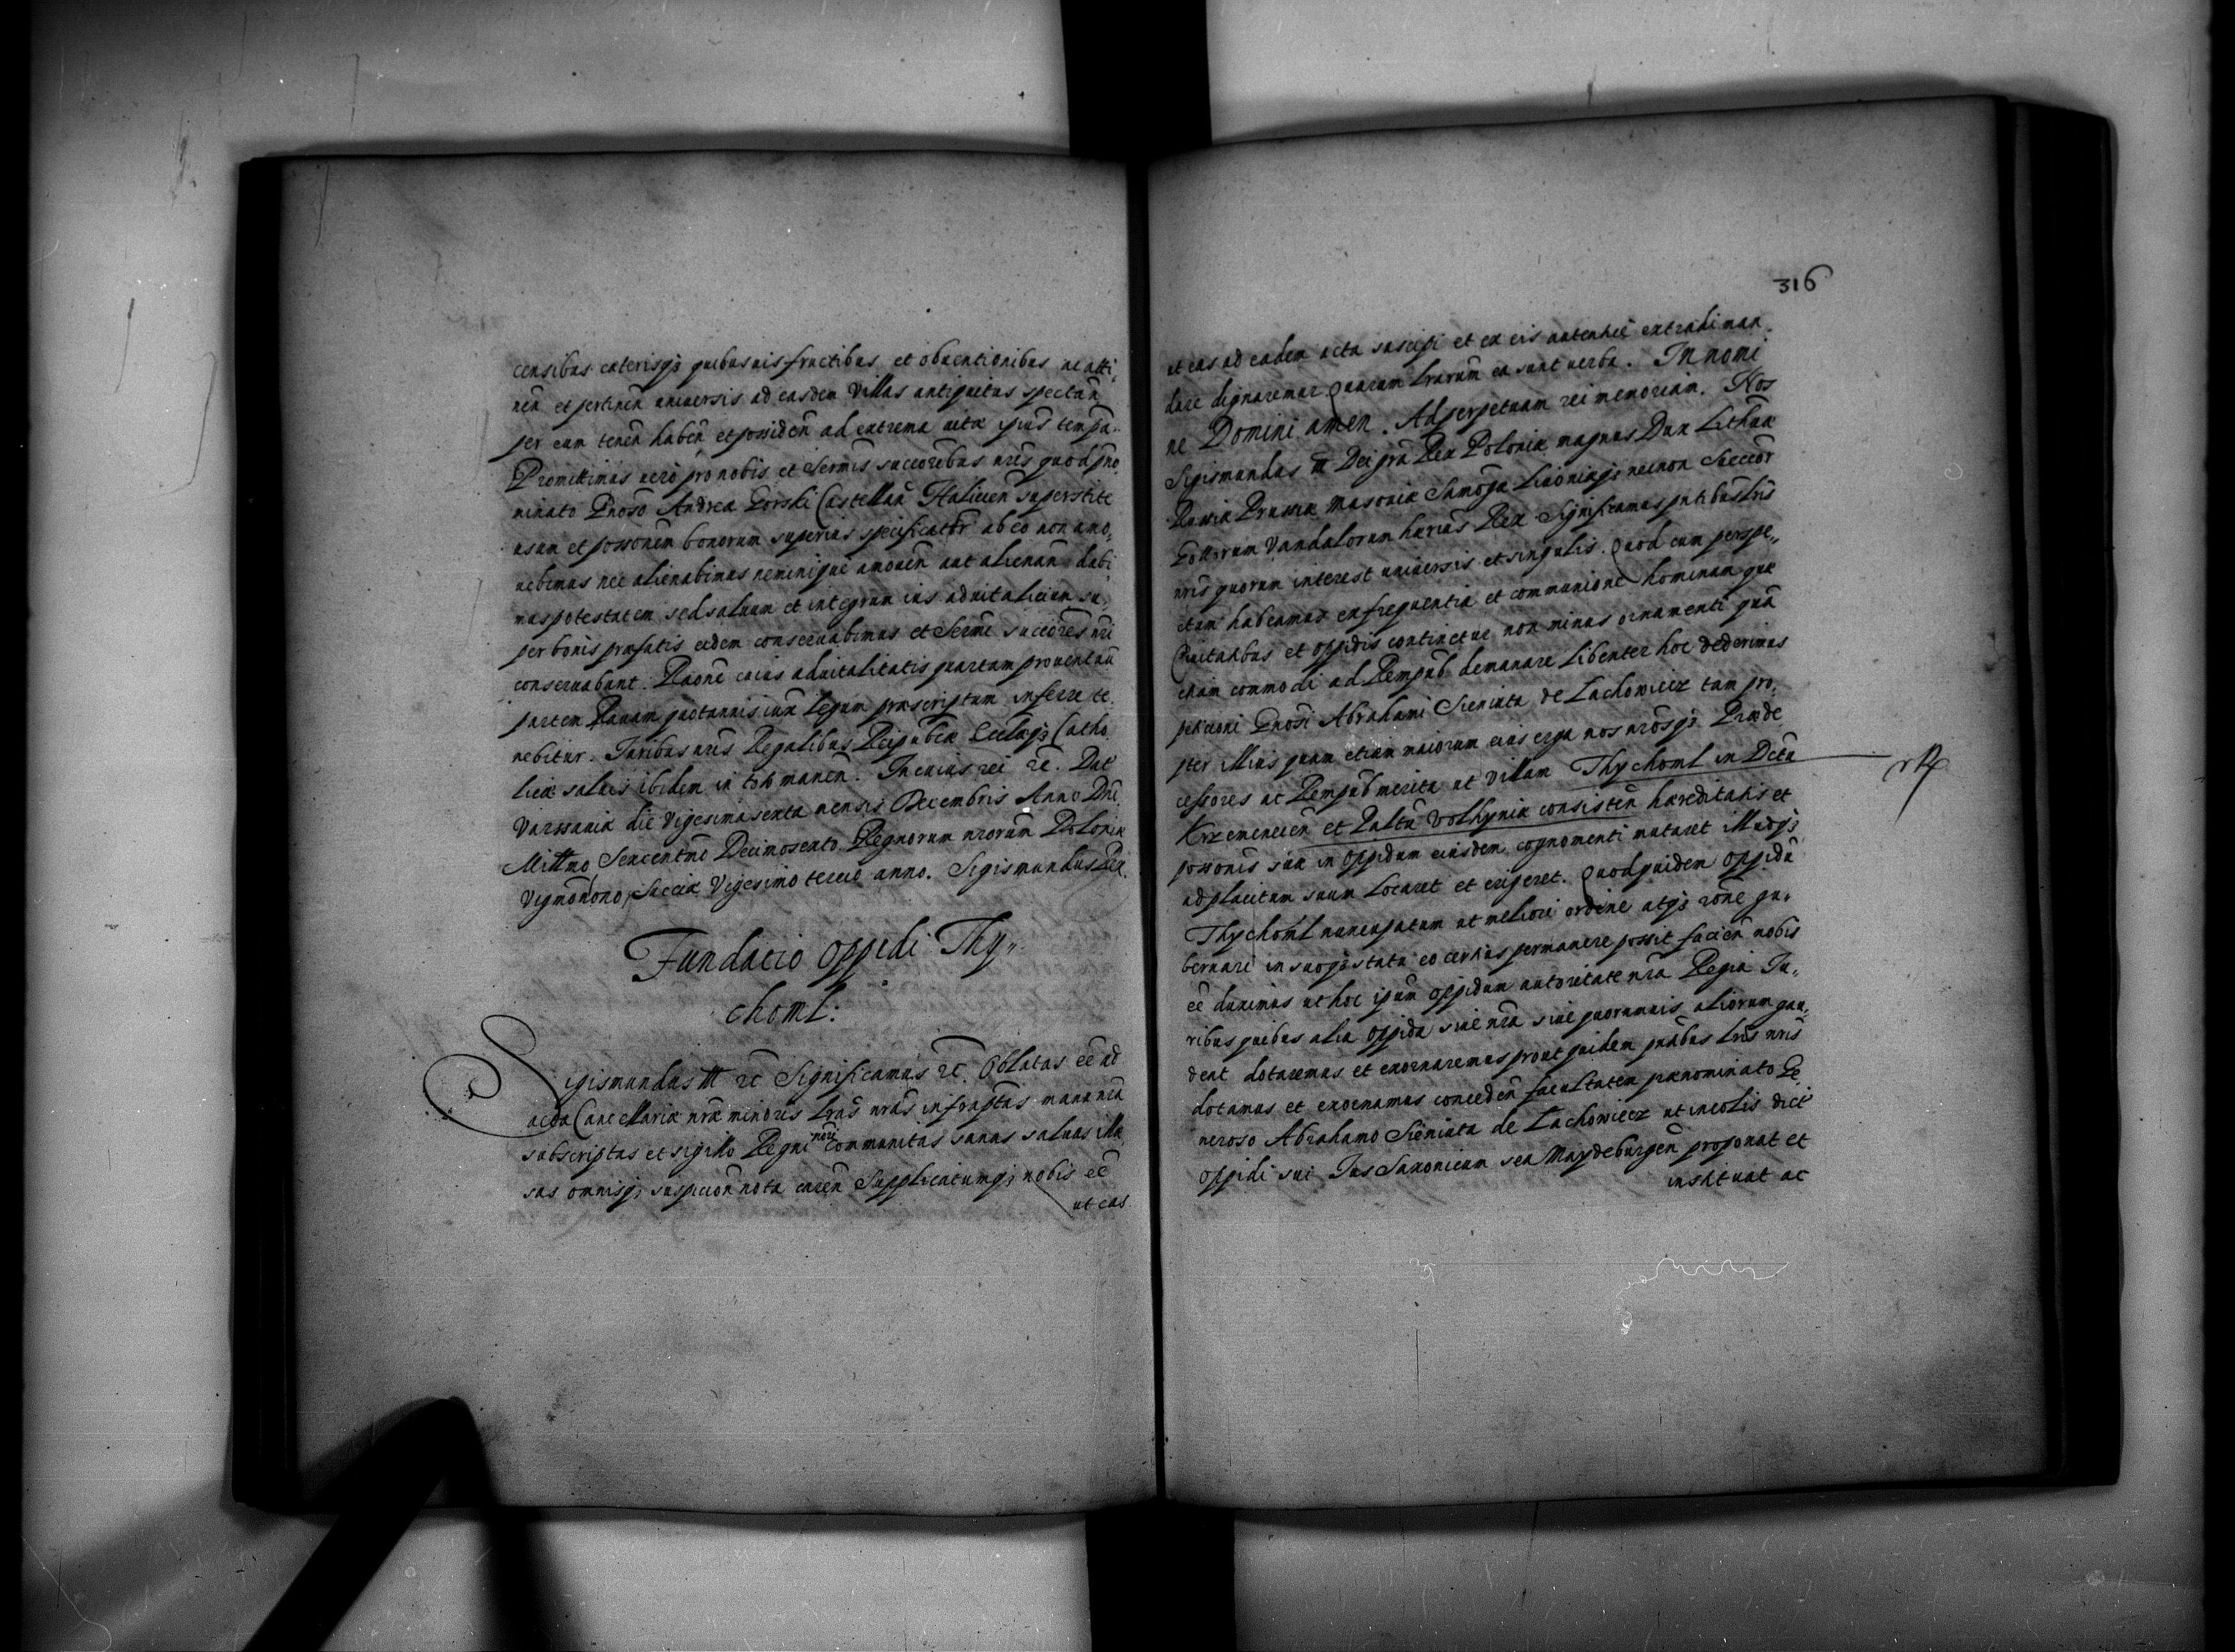 censibus caterisq3 quibusuis fructibus et obuentionibus ne atti,
nen̄ et pertinen̄ uniuersis ad easdem Villas antiquitus spectan̄
per eum tenen̄ haben̄ et possiden̄ ad extrema uitæ ipius tempa..
Promittimus uero pro nobis et Sermis succoribus nris quod pno,
minato Gnoso Andreæ Gorski Castellan̄ Halicien̄ superstite
usum et possonem bonorum superius specificator ab eo non amo,
uebimus nec alienabimus neminique amouen̄ aut alienan̄ dabi,
mus potestatem sed saluum et integrum ius aduitalicium su,
per bonis præfatis eidem conseruabimus et Sermi succores nri
conseruabunt. Raone cuius aduitalitatis quartam prouentuū
partem Rauam quotannis iux Legum præscriptum inferre te,
nebitur. Iuribus nris Regalibus Reipublcæ Ecclæq3 Catho
licæ saluis ibidem in toto manen̄. In cuius rei rē. Dat
Varsauiæ die Vigesima sexta mensis Decembris Anno Dni
Millmo Sexcentmo Decimosexto Regnorum nrorum Poloniæ
Vigmonono, Sueciæ Vigesimo tercio anno. Sigismundus Rex.
Fundatio oppidi Thy„
choml:
Sigismundus III rc Significamus rc. Oblatas eē ad
acta Cancellariæ nræ minoris Lras nras infraptas manu nra
subscriptas et sigillo Regni nri communitas sanas saluas illæ,
sas omniq3 suspicion̄ nota caren̄ Supplicatumq3 nobis eē
ut eas
316
ut eas ad eadem acta suscipi et ex eis autentice extradi man,
dare dignaremur Quarum Lrarum ea sunt uerba. In nomi
ne Domini amen. Ad perpetuam rei memoriam. Nos
Sigismundus III Dei gra Rex Poloniæ magnus Dux Lithuæ
Russiæ Prussiæ Masouiæ Samogæ Liuoniæq3 necnon Suecor
Gottorum Vandalorum hærius Rex Significamus pntibus Lris
nris quorum interest uniuersis et singulis. Quod cum perspe„
ctum habeamus ex frequentia et communione hominum quæ
Ciuitatibus et oppidis continetur non minus ornamenti quā
etiam commodi ad Rempub demanare Libenter hoc dederimus
petitioni Gnosi Abrahami Sieniuta de Lachowicz tam pro,
pter illius quam etiam maiorum eius erga nos nrosq3 Præde
cessores ac Rempub merita ut Villam Thychoml in Dctu
Krzemenecen̄ et Palttu Volhyniæ consisten̄ hæreditatis et
possonis suæ in oppidum eiusdem cognomenti mutaret illudq3
ad placitum suum Locaret et erigeret. Quod quidem oppidū
Thychoml nuncupatum ut meliori ordine atq3 rone gu„
bernari in suoq3 statu eo certius permanere possit facien̄ nobis
eē duximus ut hoc ipum oppidum autoritate nra Regia Iu„
ribus quibus alia oppida siue nra siue quorumuis aliorum gau,
dent dotaremus et exornaremus prout quidem pntibus Lris nris
dotamus et exornamus conceden̄ facultatem prænominato Ge,
neroso Abrahamo Sieniuta de Lachowicz ut incolis dict
oppidi sui Ius Saxonicum seu Maydeburgen̄ proponat et
instituat ac